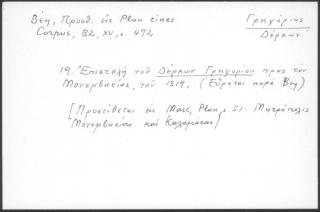 Βέη, Προσθ. εἰς Plan eines
Corpus, BZ, XV, σ. 472
Γρηγόριος
Δέρκων
19. Ἐπιστολή τοῦ Δέρκων Γρηγορίου πρός τόν
Μονεμβασίας, τοῦ 1819, (Εὕρηται παρά Βέη)
[Προστίθεται εἰς Marc, Plan, σ. 51: Μητρόπολις
Μονεμβασίας καί Καλαμάτας]